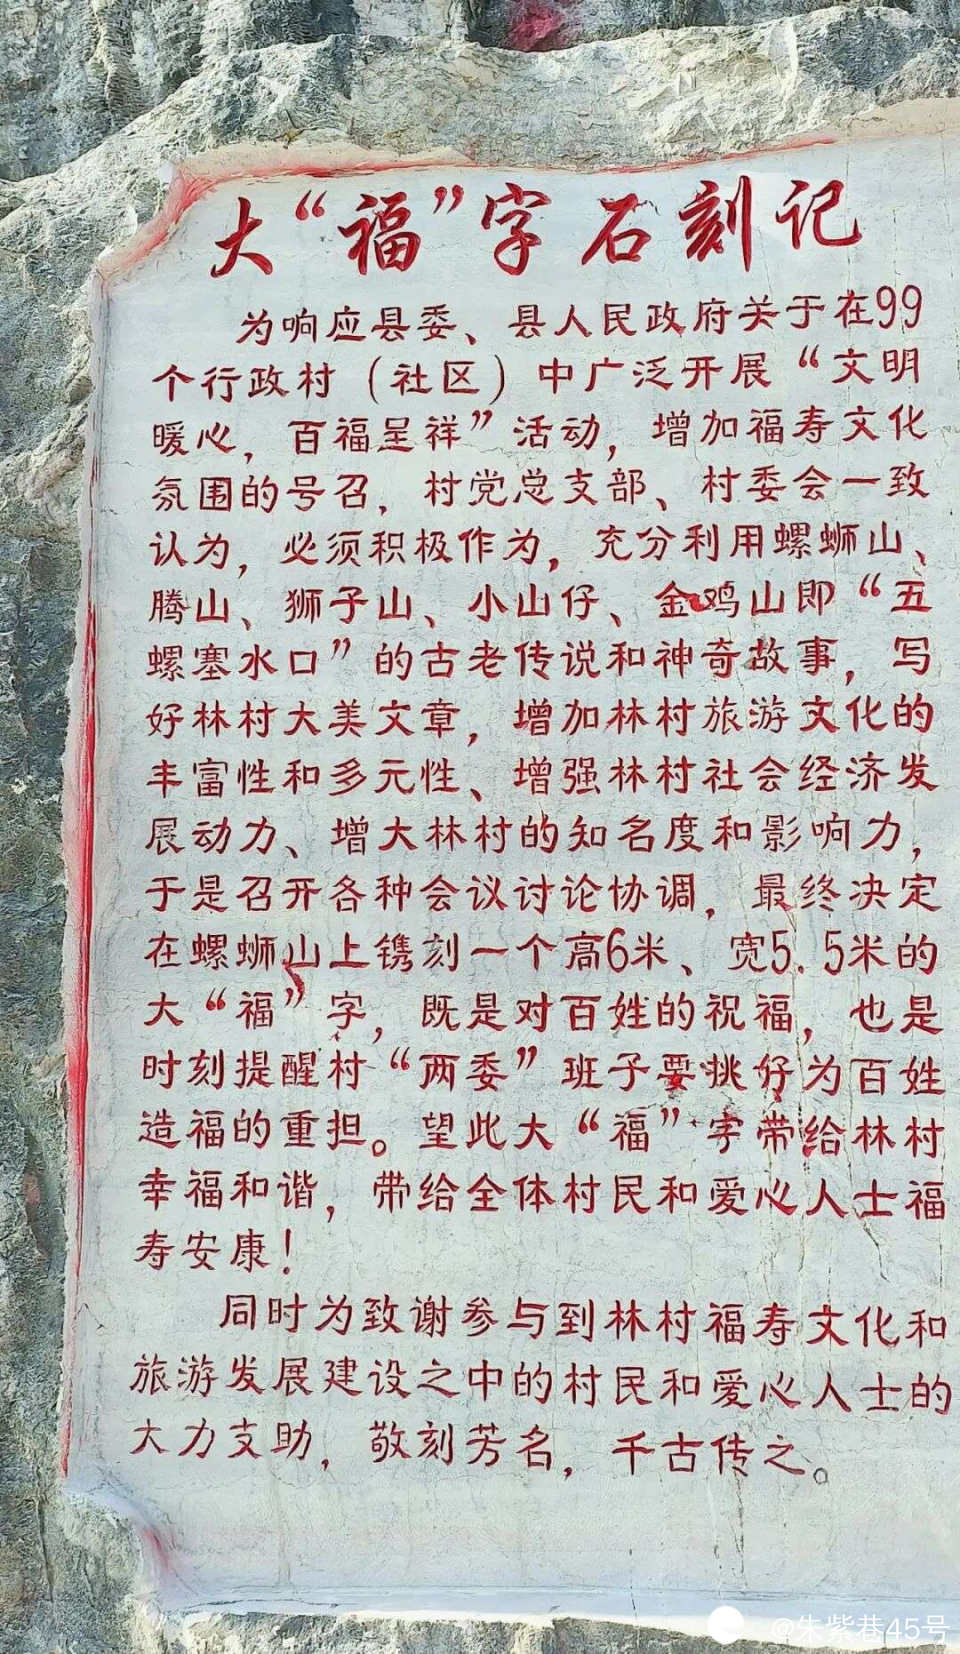 大“福”字石刻记
为响应县委、县人民政府关于在99
个行政村（社区）中广泛开展“文明
暖心，百福呈祥”活动，增加福寿文化
氛围的号召，村党总支部、村委会一致
认为，必须积极作为，充分利用螺蛳山、
腾山、狮子山、小山仔、金鸡山即“五
螺塞水口”的古老传说和神奇故事，写
好林村大美文章，增加林村旅游文化的
丰富性和多元性、增强林村社会经济发
展动力、增大林村的知名度和影响力，
于是召开各种会议讨论协调，最终决定
在螺蛳山上镌刻一个高6米、宽5.5米的
大“福”字，既是对百姓的祝福，也是
时刻提醒村“两委”班子要挑好为百姓
造福的重担。望此大“福”字带给林村
幸福和谐，带给全体村民和爱心人士福
寿安康！
同时为致谢参与到林村福寿文化和
旅游发展建设之中的村民和爱心人士的
大力支助，敬刻芳名，千古传之。
@朱紫巷45号